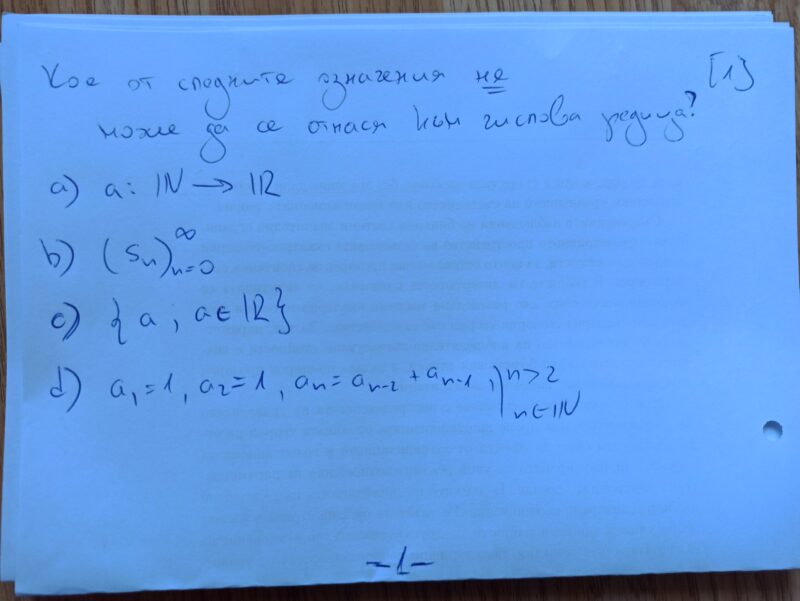 Кое от следните означения не [1]
може да се отнася към числова редица?
a) a: ℕ → ℝ
b) (Sₙ)ₙ₌₀^∞
c) { a ; a ∈ ℝ }
d) a₁=1, a₂=1, aₙ=aₙ₋₂+aₙ₋₁, n>2
n∈ℕ
-1-